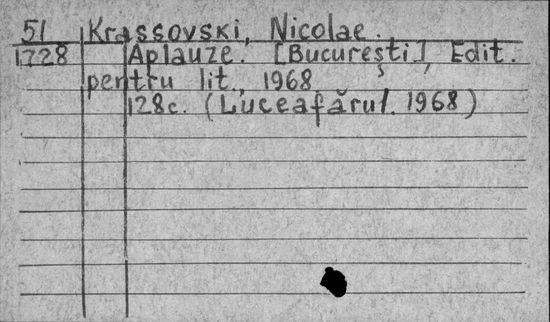 51 Krassovski, Nicolae.
1728 Aplauze. [Bucureşti], Edit.
pentru lit., 1968,
128c. (Luceafărul. 1968)